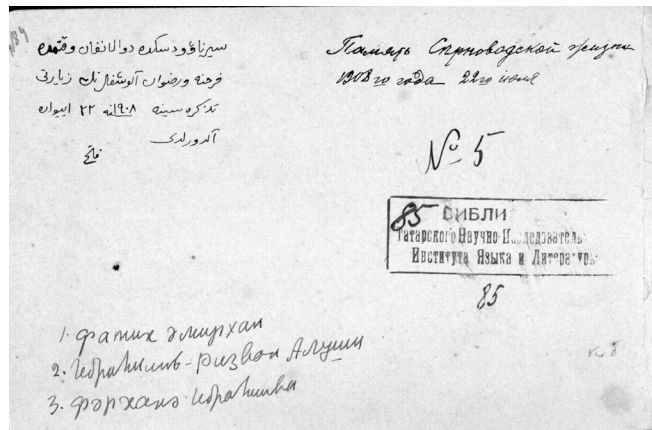 سيرناؤودسكده دوالانغان وقتمده
فرحنه ورضوان آلوشفلرنك زيارتى
تذكره سينه ١٩٠٨نه ٢٢ ايون
آلدورلدى
فاتح
Память Серноводской жизни
1908 го года 22го июля
№ 5
85
БИБЛИ
Татарского Научно-Исследователь
Института Языка и Литературы
85
1. Фатих Әмирхан
2. Ибраһимъ-Ризван Алуши
3. Фәрханә Ибраһимва